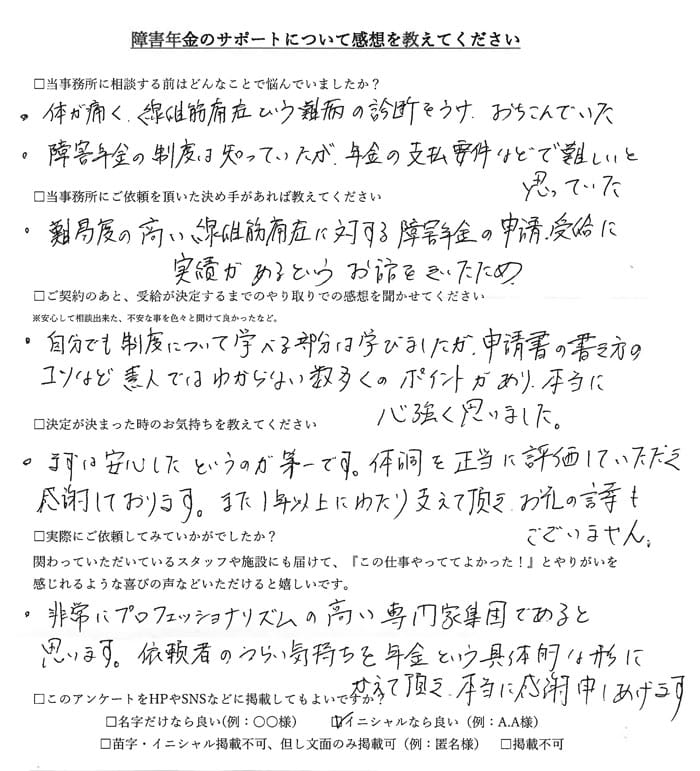 障害年金のサポートについて感想を教えてください
□当事務所に相談する前はどんなことで悩んでいましたか？
・体が痛く、線維筋痛症という難病の診断をうけ、おちこんでいた
・障害年金の制度は知っていたが、年金の支払要件などで難しいと
思っていた
□当事務所にご依頼を頂いた決め手があれば教えてください
・難易度の高い線維筋痛症に対する障害年金の申請、受給に
実績があるというお話をきいたため
□ご契約のあと、受給が決定するまでのやり取りでの感想を聞かせてください
※安心して相談出来た、不安な事を色々と聞けて良かったなど。
・自分でも制度について学べる部分は学びましたが、申請書の書き方の
コツなど素人ではわからない数多くのポイントがあり、本当に
心強く思いました。
□決定が決まった時のお気持ちを教えてください
・まずは安心したというのが第一です。体調を正当に評価していただき
感謝しております。また1年以上にわたり支えて頂き、お礼の言葉も
ございません。
□実際にご依頼してみていかがでしたか？
関わっていただいているスタッフや施設にも届けて、『この仕事やっててよかった！』とやりがいを
感じれるような喜びの声などいただけると嬉しいです。
・非常にプロフェッショナリズムの高い専門家集団であると
思います。依頼者のつらい気持ちを年金という具体的な形に
かえて頂き、本当に感謝申しあげます
□このアンケートをHPやSNSなどに掲載してもよいですか？
□名字だけなら良い（例：〇〇様） ☑イニシャルなら良い（例：A.A様）
□苗字・イニシャル掲載不可、但し文面のみ掲載可（例：匿名様） □掲載不可